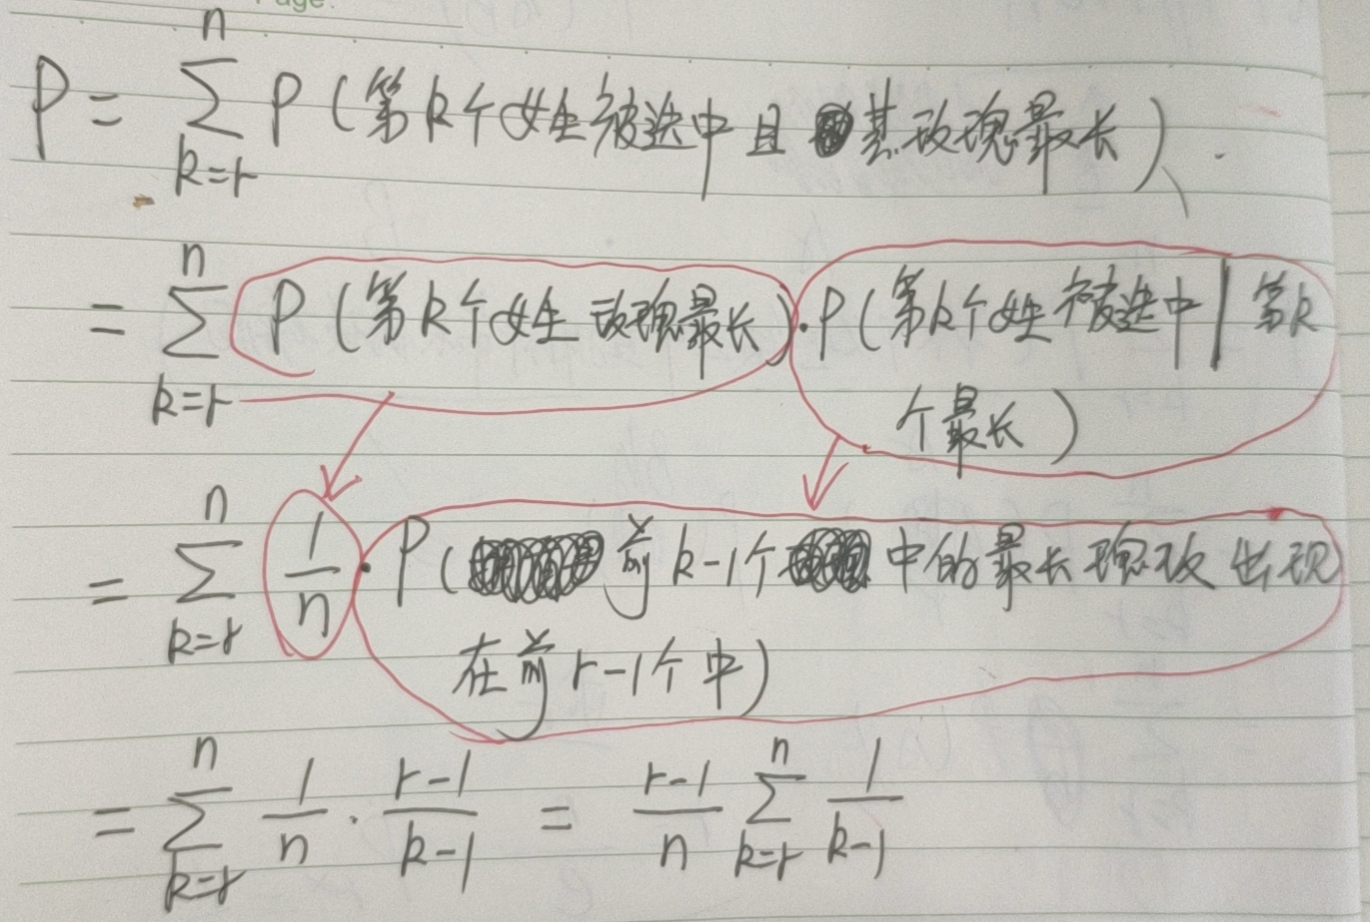 Page:
P = \sum_{k=r}^{n} P (第k个女生被选中且其玫瑰最长)
= \sum_{k=r}^{n} P (第k个女生玫瑰最长)·P(第k个女生被选中|第k
个最长)
= \sum_{k=r}^{n} \frac{1}{n}·P(前k-1个中的最长瑰玫出现
在前r-1个中)
= \sum_{k=r}^{n} \frac{1}{n}·\frac{r-1}{k-1} = \frac{r-1}{n} \sum_{k=r}^{n} \frac{1}{k-1}